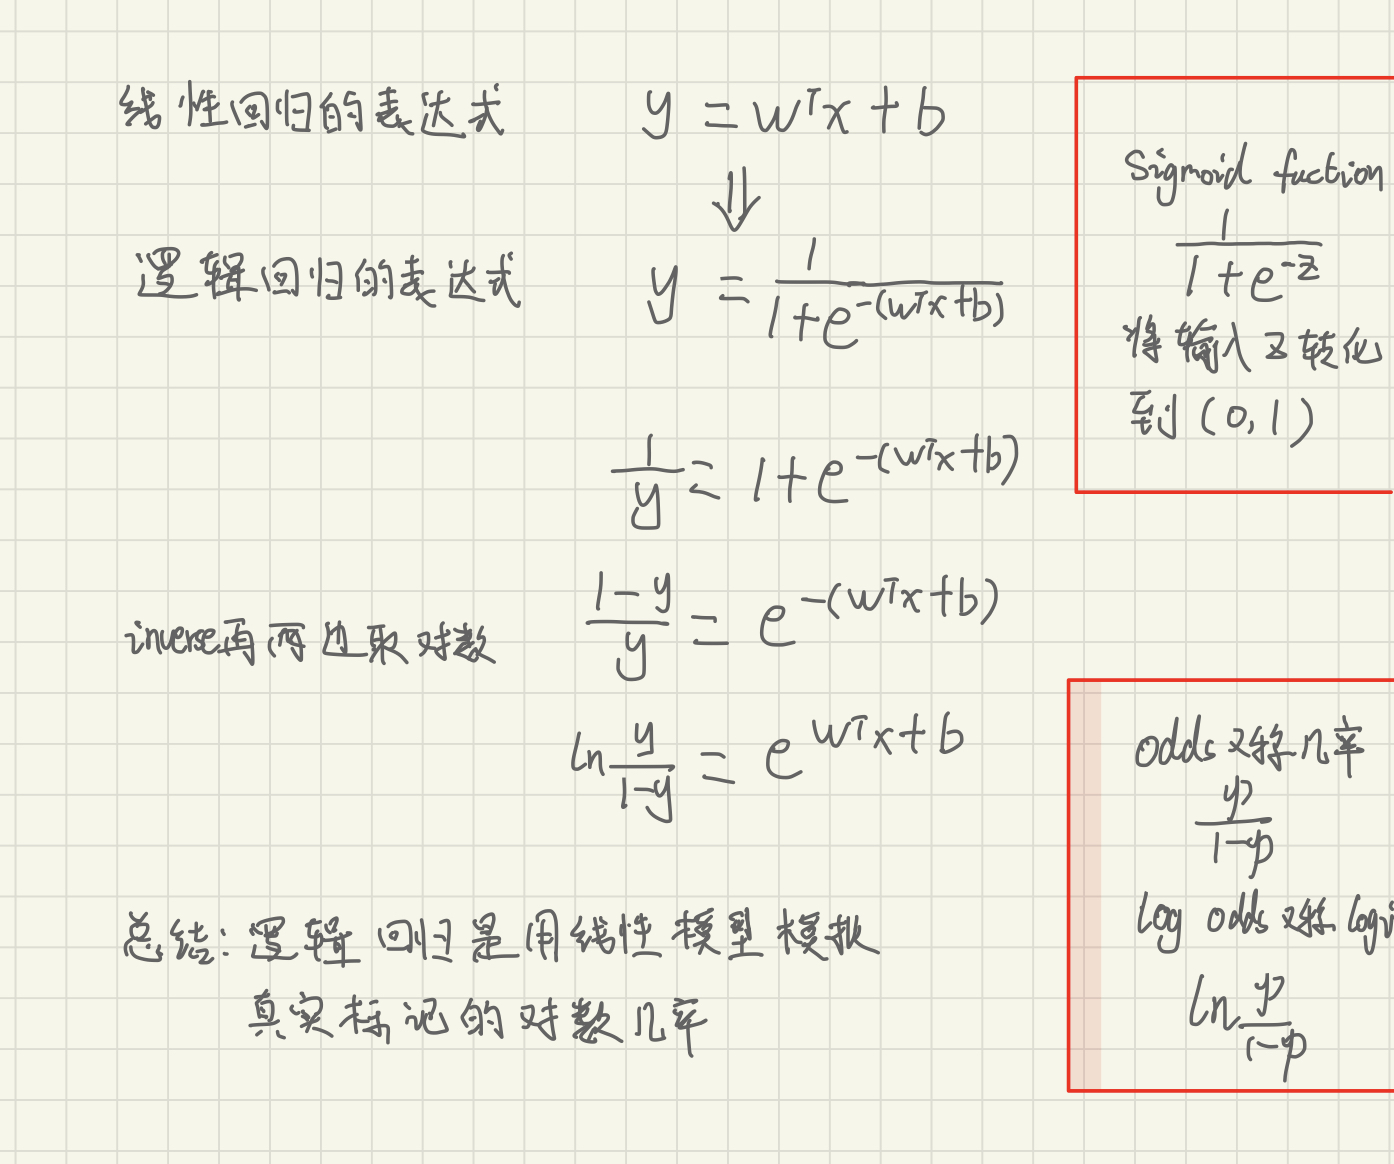 线性回归的表达式 y = wᵀx + b
⇓
逻辑回归的表达式 y = 1/(1+e^-(wᵀx+b))
1/y = 1+e^-(wᵀx+b)
(1-y)/y = e^-(wᵀx+b)
inverse再两边取对数
ln y/(1-y) = e^wᵀx+b
总结:逻辑回归是用线性模型模拟
真实标记的对数几率
Sigmoid fuction
1/(1+e^-z)
将输入z转化
到(0,1)
odds又称几率
p/(1-p)
log odds又称logi
ln p/(1-p)